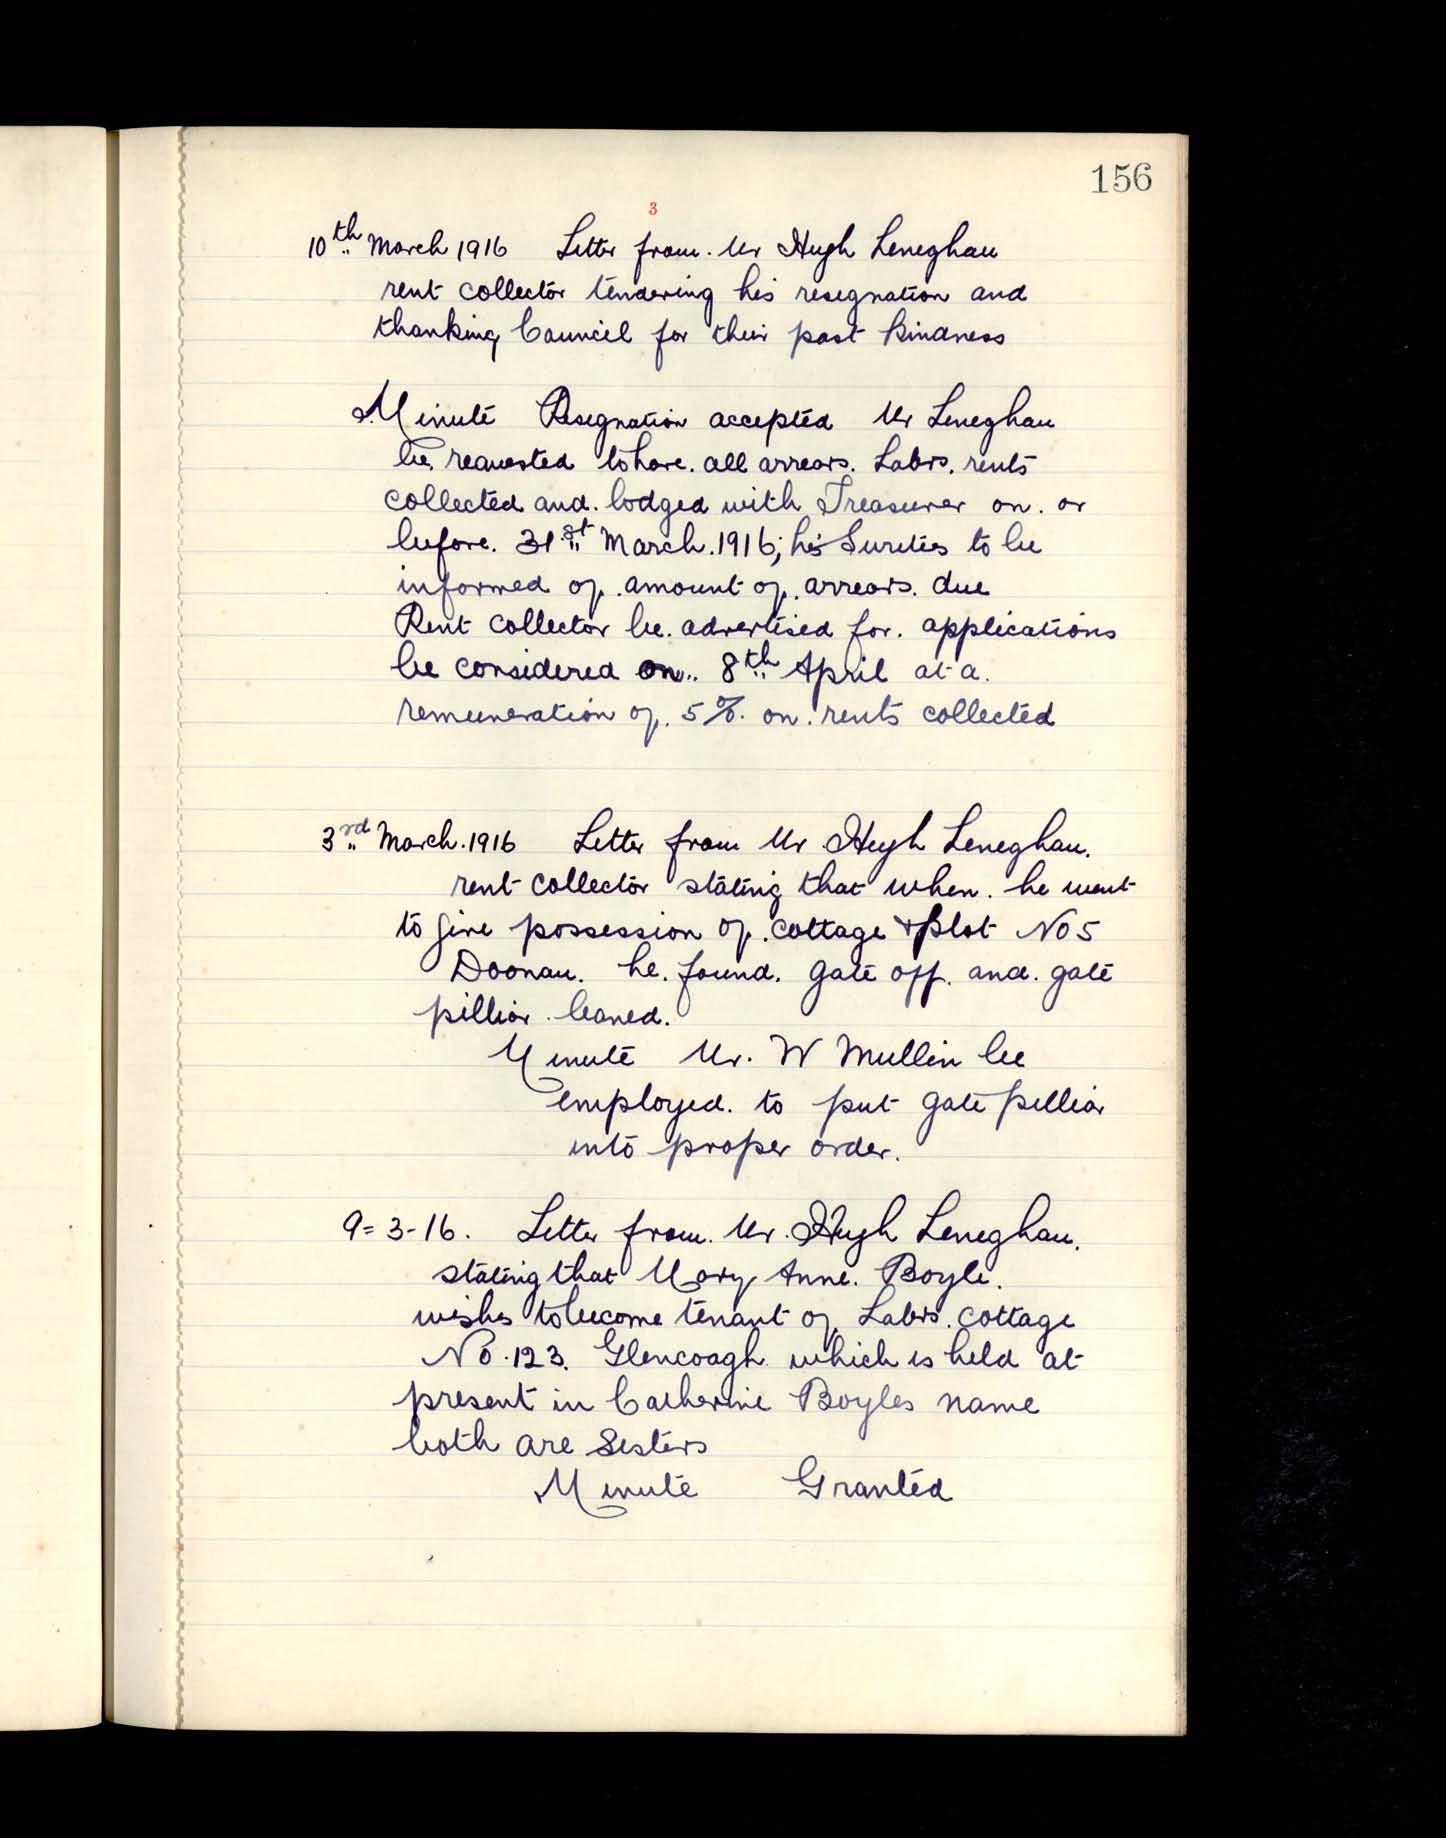 156
3
10th March 1916 Letter from. Mr Hugh Leneghan
rent collector tendering his resignation and
thanking Council for their past kindness
Minute Resignation accepted Mr Leneghan
be requested to have. all arrears. Labrs. rents
collected and. lodged with Treasurer on. or
before. 31st March. 1916; his Sureties to be
informed of. amount of. arrears. due
Rent collector be. advertised for. applications
be considered on.. 8th April at a.
remuneration of. 5%. on. rents collected
3rd March. 1916 Letter from Mr. Hugh Leneghan.
rent collector stating that when. he went
to give possession of. cottage & plot No 5
Doonan. he. found. gate off. and. gate
pilliar. leaned.
Minute Mr. W Mullin be
employed. to put gate pilliar
into proper order.
9=3-16. Letter from. Mr. Hugh Leneghan.
stating that Mary Anne. Boyle.
wishes to become tenant of Labrs. cottage
No. 123. Glencoagh which is held at
present in Catherine Boyles name
both are sisters
Minute Granted